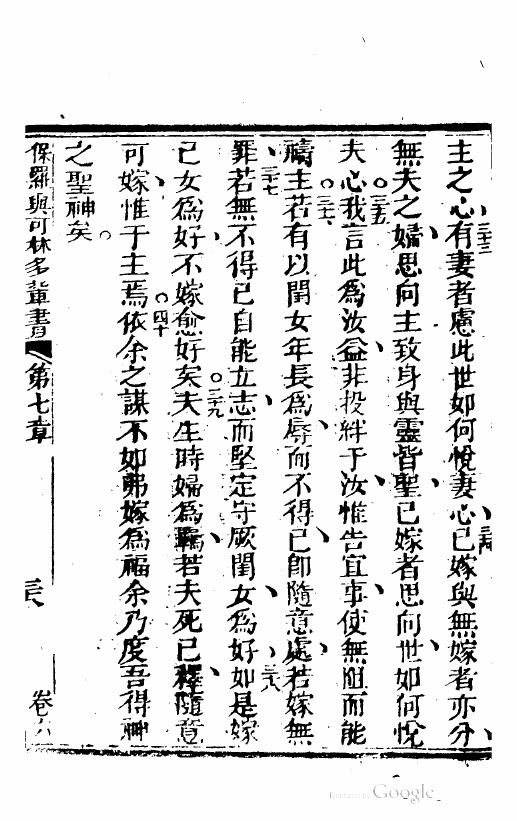 主之心三十三有妻者慮此世如何悅妻心三十四已嫁與無嫁者亦分
無夫之婦思向主致身與靈皆聖已嫁者思向世如何悅
夫心三十五我言此為汝益非投絆于汝惟告宜事使無阻而能
禱主三十六若有以閨女年長為辱而不得已即隨意處若嫁無
罪三十七若無不得已自能立志而堅定守厥閨女為好三十八如是嫁
己女為好不嫁愈好矣三十九夫生時婦為縛若夫死已釋隨意
可嫁惟于主焉四十依余之謀不如弗嫁為福余乃度吾得神
之聖神矣
保羅與可林多輩書 第七章 卷六
Digitized by Google